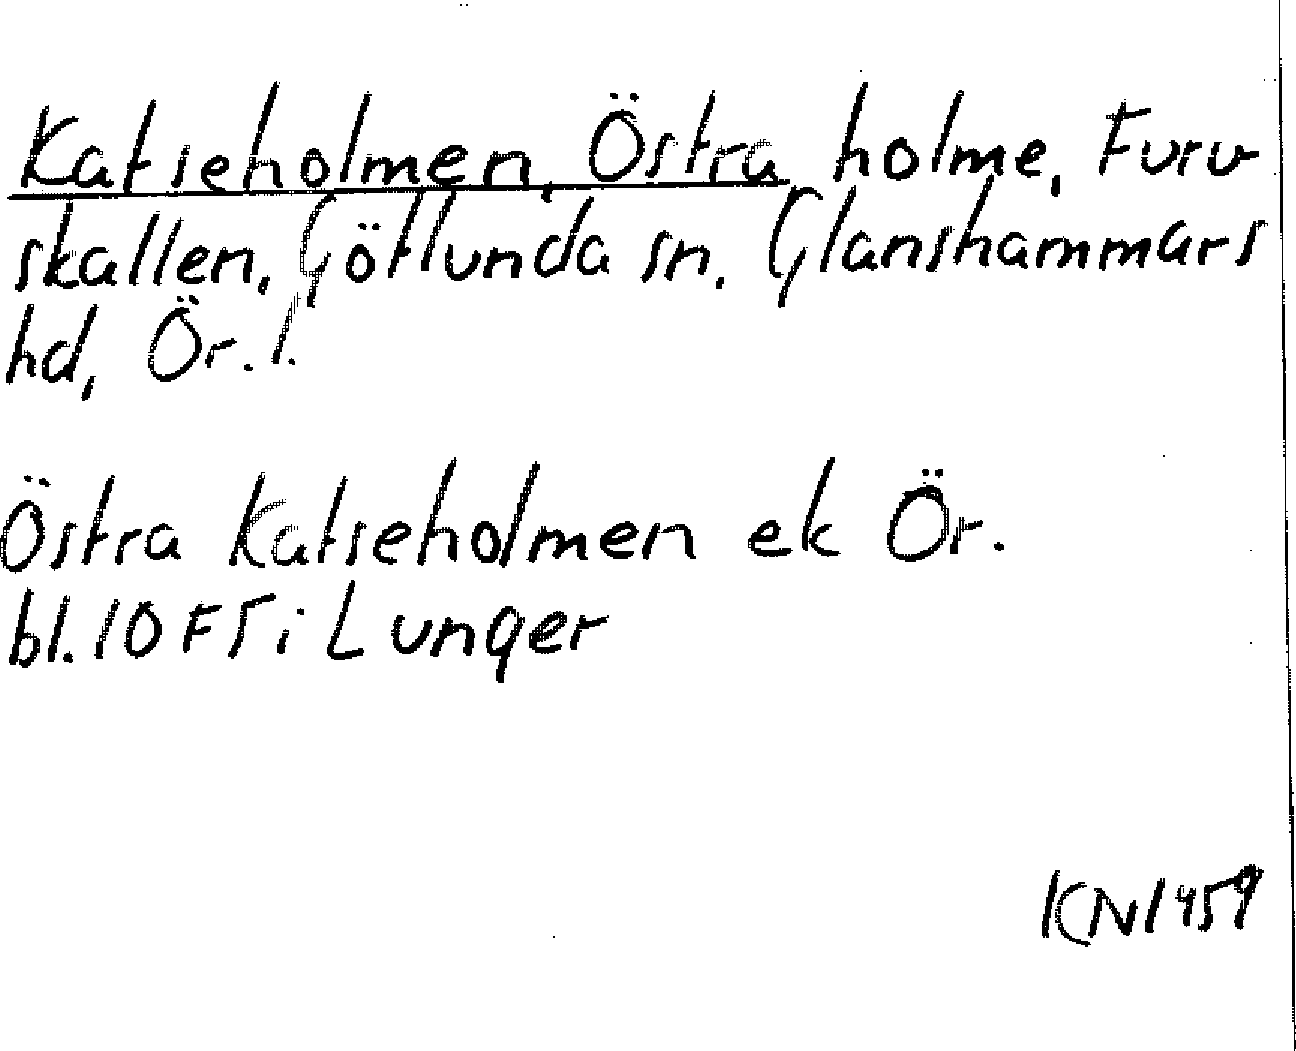 Katseholmen, Östra, holme, Furu-
skallen, Götlunda sn. Glanshammars
hd, Ör. l.
Östra Katseholmen ek Ör.
bl. 10 F5 i Lunger
KN1459